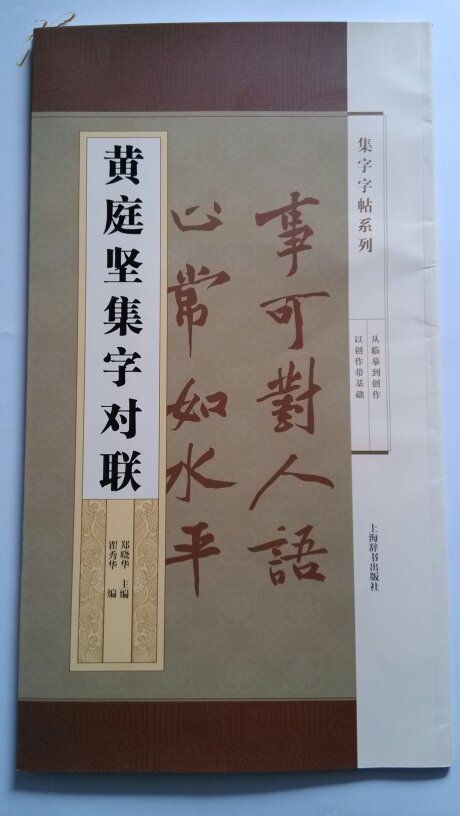 集字字帖系列
从临摹到创作
以创作带基础
上海辞书出版社
事可對人語
心常如水平
黄庭坚集字对联
郑晓华 主编
瞿秀华 编